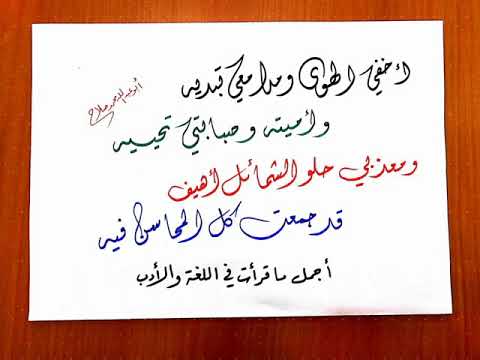 أخفي الهوى ومدامعي تبديه
وأميته وصبابتي تحييه
ومعذبي حلو الشمائل أهيف
قد جمعت كل المحاسن فيه
أجمل ما قرأت في اللغة والأدب